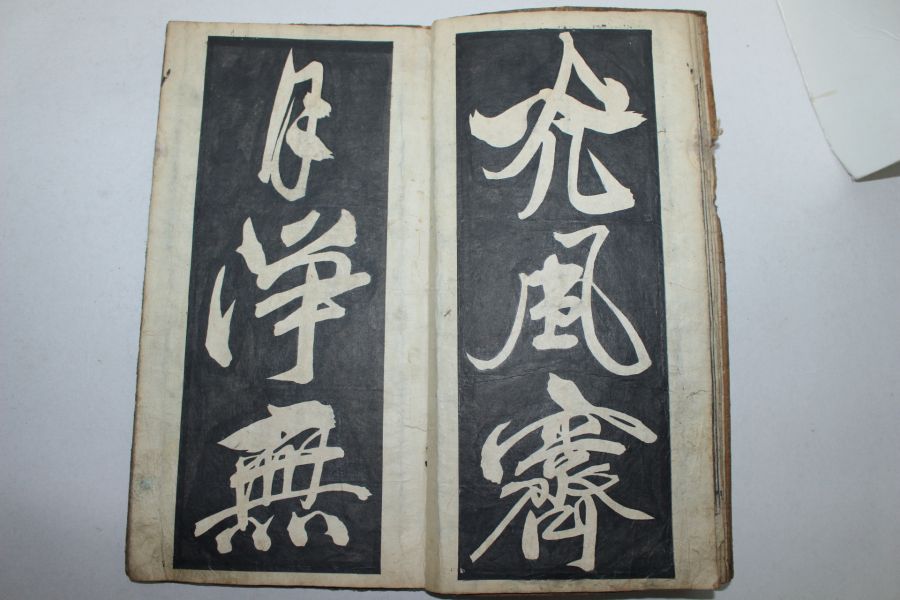 光風霽
月淨無